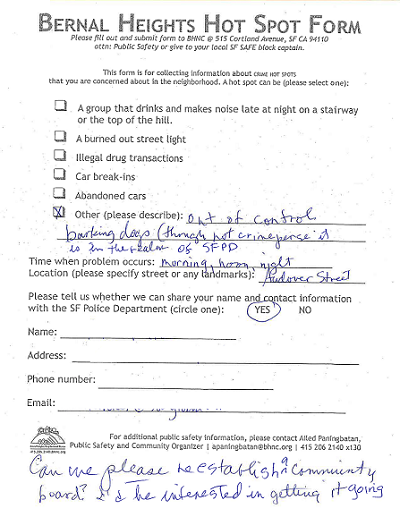 BERNAL HEIGHTS HOT SPOT FORM
Please fill out and submit form to BHNC @ 515 Cortland Avenue, SF CA 94110
attn: Public Safety or give to your local SF SAFE block captain.
This form is for collecting information about CRIME HOT SPOTS
that you are concerned about in the neighborhood. A hot spot can be (please select one):
A group that drinks and makes noise late at night on a stairway
or the top of the hill.
A burned out street light
Illegal drug transactions
Car break-ins
Abandoned cars
X Other (please describe): out of control
barking dogs (through not crime per se it
is in the realm of SFPD
Time when problem occurs: morning, noon, night
Location (please specify street or any landmarks): Andover Street
Please tell us whether we can share your name and contact information
with the SF Police Department (circle one): YES NO
Name:
Address:
Phone number:
Email:
For additional public safety information, please contact Ailed Paningbatan,
Public Safety and Community Organizer | apaningbatan@bhnc.org | 415 206 2140 x130
Can we please reestablish a community
board? I'd be interested in getting it going